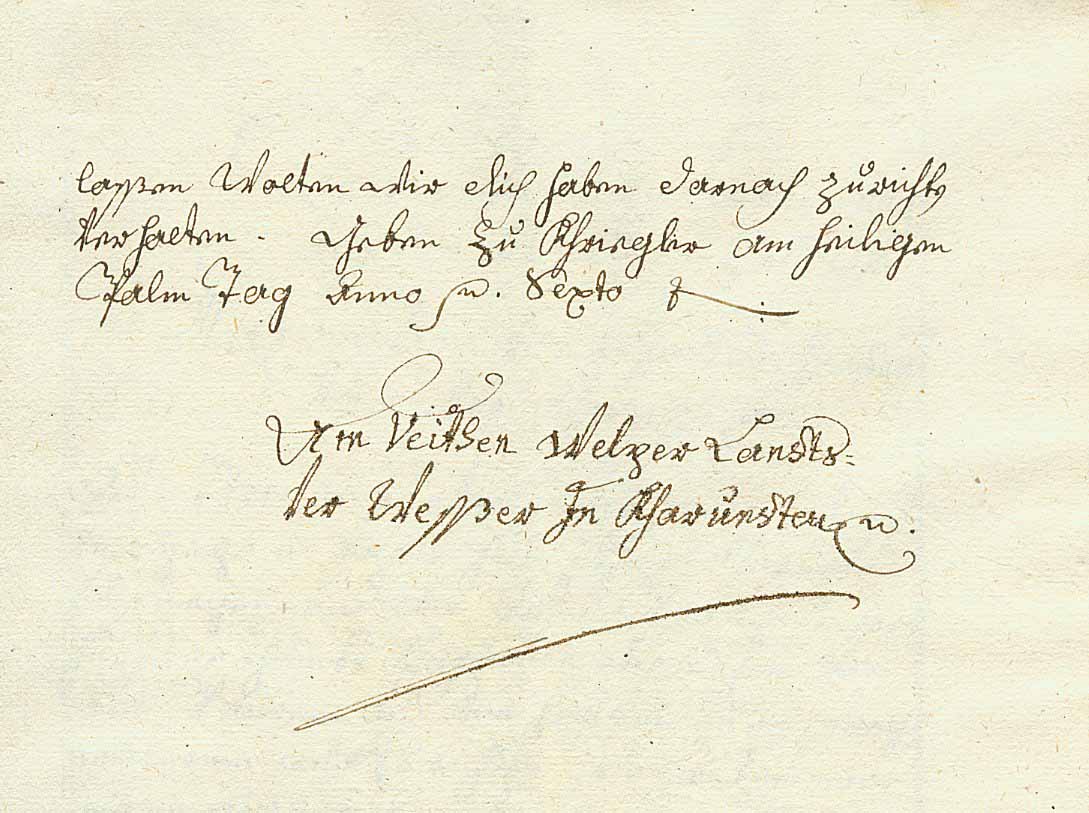 laßsen Wolten Wir dich haben darnach zurichtn
Verhalten. Geben zu Khriegler am heiligen
Palm Tag Anno Sexto
Am Veithen Welzer Landts-
Ver Weßer In Kharndten